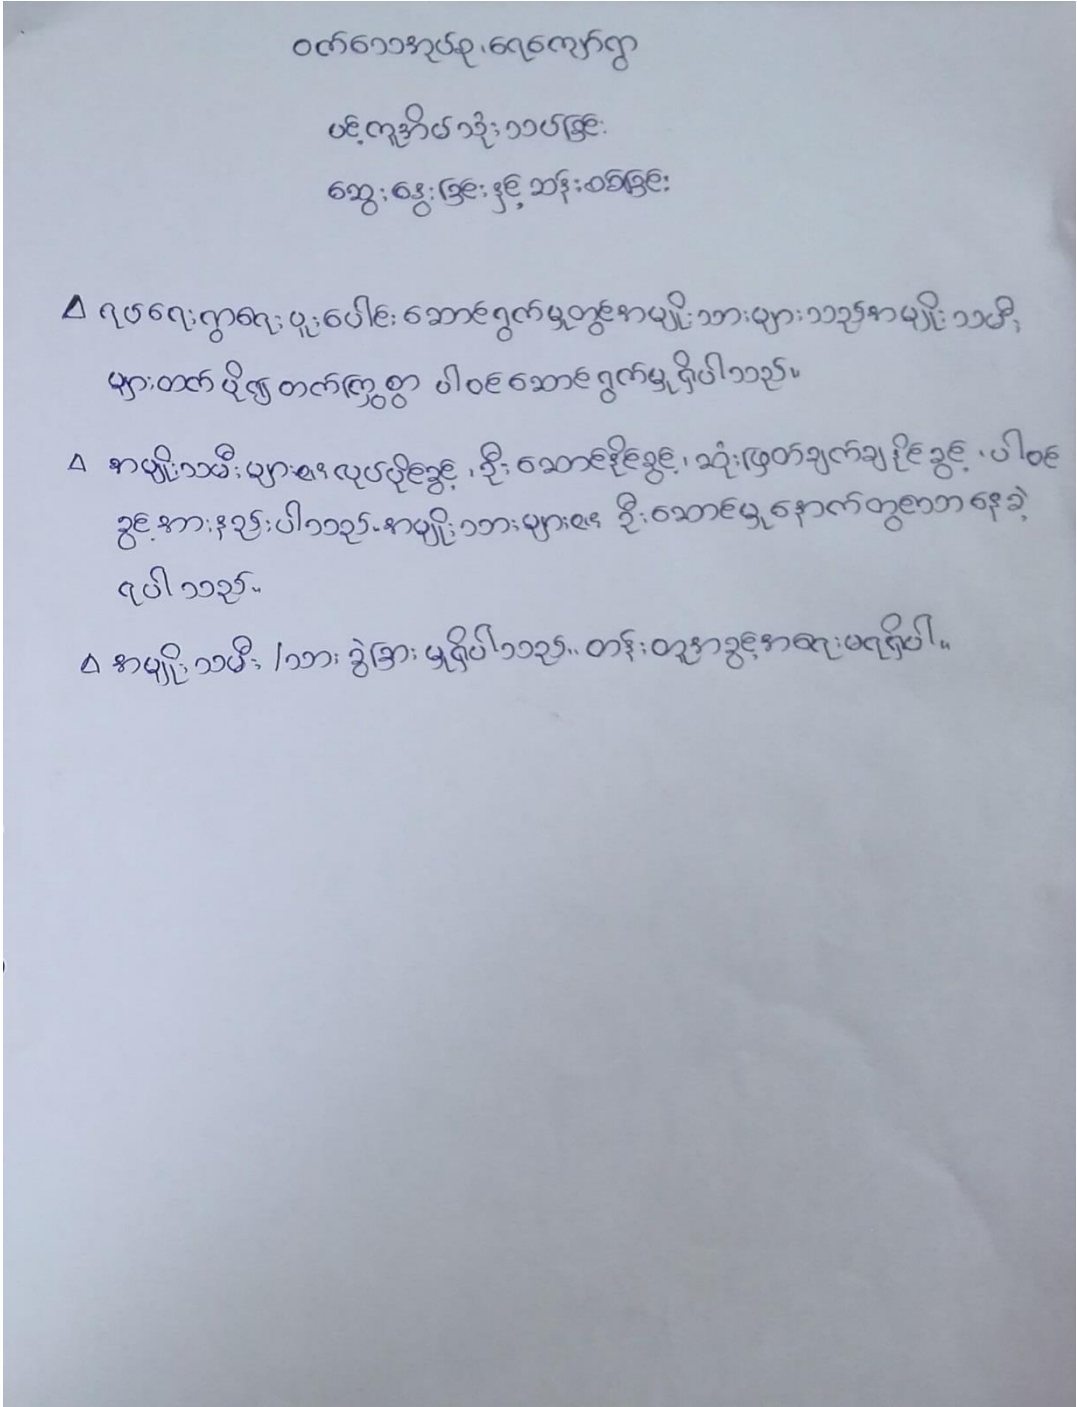 ဝက်သေအုပ်စု၊ရေကျော်ရွာ
ပင့်ကူအိမ်သုံးသပ်ခြင်း
ဆွေးနွေးခြင်းနှင့် ဆန်းစစ်ခြင်း
∆ ရပ်ရေးရွာရေးပူးပေါင်းဆောင်ရွက်မှုတွင်အမျိုးသားများသည်အမျိုးသမီး
များထက်ပို၍တက်ကြွစွာ ပါဝင်ဆောင်ရွက်မှုရှိပါသည်။
∆ အမျိုးသမီးများ၏လုပ်ပိုင်ခွင့်၊ဦးဆောင်နိုင်ခွင့်၊ဆုံးဖြတ်ချက်ချနိုင်ခွင့်၊ပါဝင်
ခွင့်အားနည်းပါသည်။အမျိုးသားများ၏ ဦးဆောင်မှုနောက်တွင်သာနေခဲ့
ရပါသည်။
∆ အမျိုးသမီး/သား ခွဲခြားမှုရှိပါသည်။ တန်းတူအခွင့်အရေးမရရှိပါ။